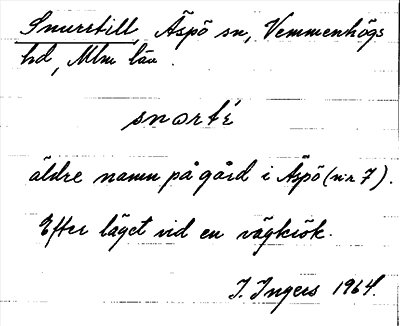 Snurrtill, Äspö sn, Vemmenhögs
hd, Mlm län.
snorté
äldre namn på gård i Äspö (n:r 7).
Efter läget vid en vägkrök.
I. Ingers 1964.